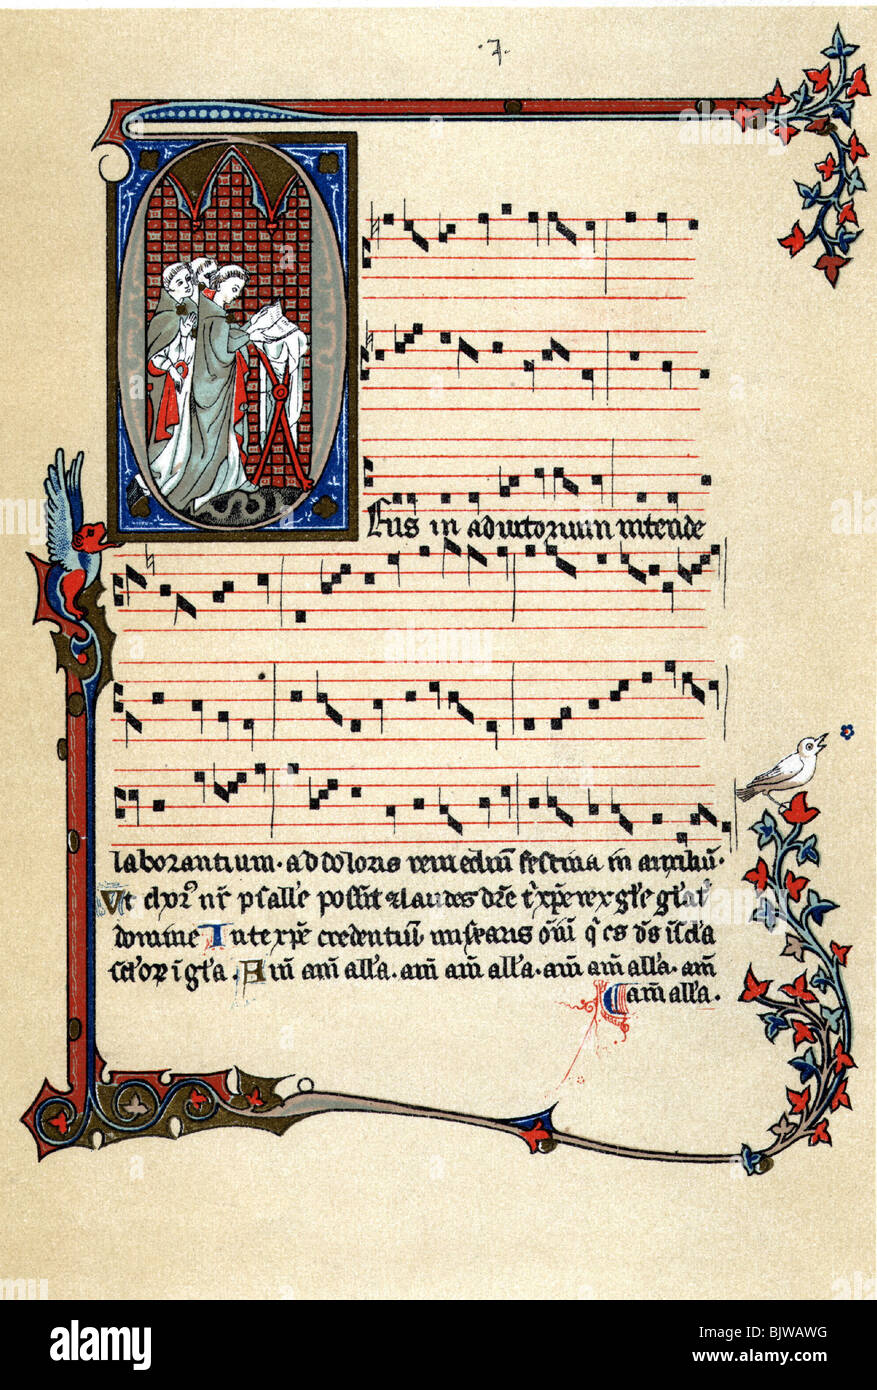 ·7·
Eus in adiutorium intende
laborantium · ad doloris remediū festina in auxiliū ·
Ut chor' nr̄ psalle possit & laudes dr̄e t xp̄e rex gl'e gl'a t'
domine In te xp̄e credentiū miseraris oīū q es ds̄ ī scl'a
scl'or ī gl'a . Am̄ am̄ all'a . am̄ am̄ all'a . am̄ am̄ all'a . am̄
am̄ all'a .
alamy
Image ID: BJWAWG
www.alamy.com